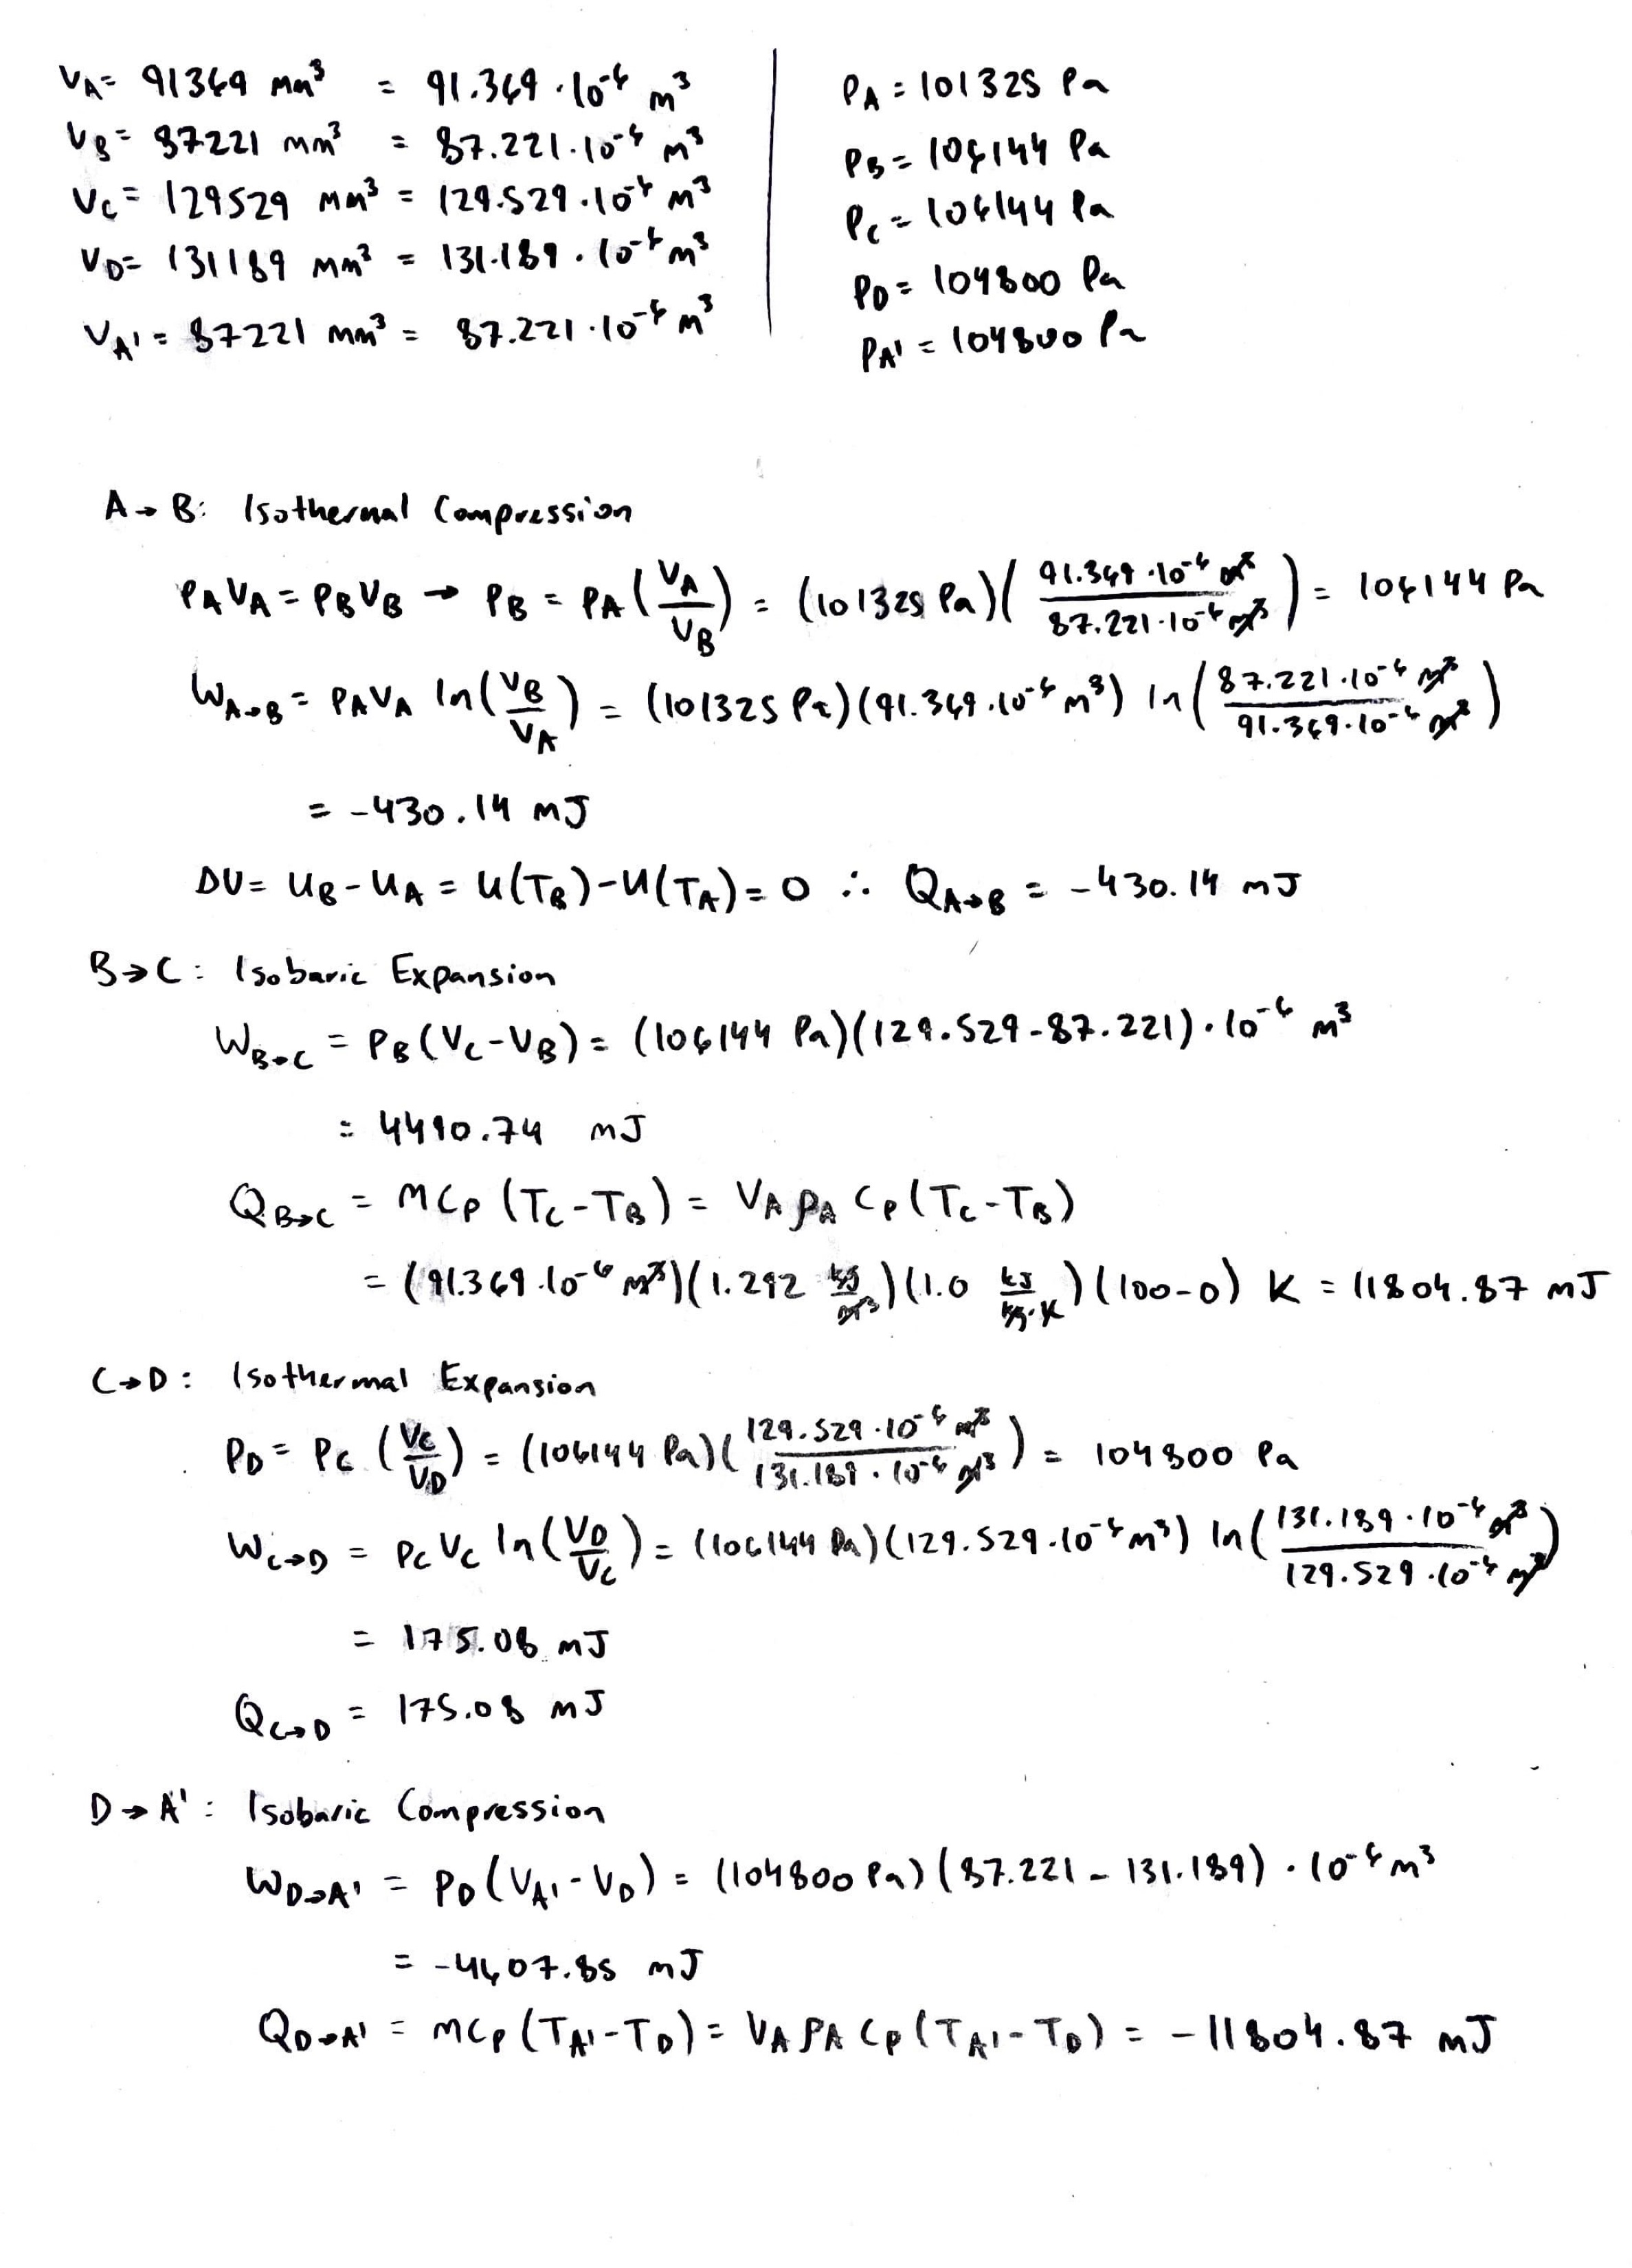 V_A = 91369 mm³ = 91.369·10⁻⁶ m³
V_B = 87221 mm³ = 87.221·10⁻⁶ m³
V_C = 129529 mm³ = 129.529·10⁻⁶ m³
V_D = 131189 mm³ = 131.189·10⁻⁶ m³
V_A' = 87221 mm³ = 87.221·10⁻⁶ m³
P_A = 101325 Pa
P_B = 106144 Pa
P_C = 106144 Pa
P_D = 104800 Pa
P_A' = 104800 Pa
A→B: Isothermal Compression
P_A V_A = P_B V_B → P_B = P_A (V_A/V_B) = (101325 Pa)(91.369·10⁻⁶ m³/87.221·10⁻⁶ m³) = 106144 Pa
W_A→B = P_A V_A ln(V_B/V_A) = (101325 Pa)(91.369·10⁻⁶ m³) ln(87.221·10⁻⁶ m³/91.369·10⁻⁶ m³)
= -430.14 mJ
ΔU = U_B - U_A = U(T_B) - U(T_A) = 0 ∴ Q_A→B = -430.14 mJ
B→C: Isobaric Expansion
W_B→C = P_B (V_C - V_B) = (106144 Pa)(129.529 - 87.221)·10⁻⁶ m³
= 4490.74 mJ
Q_B→C = m C_P (T_C - T_B) = V_A ρ_A C_P (T_C - T_B)
= (91.369·10⁻⁶ m³)(1.292 kg/m³)(1.0 kJ/kg·K)(100-0) K = 11804.87 mJ
C→D: Isothermal Expansion
P_D = P_C (V_C/V_D) = (106144 Pa)(129.529·10⁻⁶ m³/131.189·10⁻⁶ m³) = 104800 Pa
W_C→D = P_C V_C ln(V_D/V_C) = (106144 Pa)(129.529·10⁻⁶ m³) ln(131.189·10⁻⁶ m³/129.529·10⁻⁶ m³)
= 175.08 mJ
Q_C→D = 175.08 mJ
D→A': Isobaric Compression
W_D→A' = P_D (V_A' - V_D) = (104800 Pa)(87.221 - 131.189)·10⁻⁶ m³
= -4607.85 mJ
Q_D→A' = m C_P (T_A' - T_D) = V_A ρ_A C_P (T_A' - T_D) = -11804.87 mJ